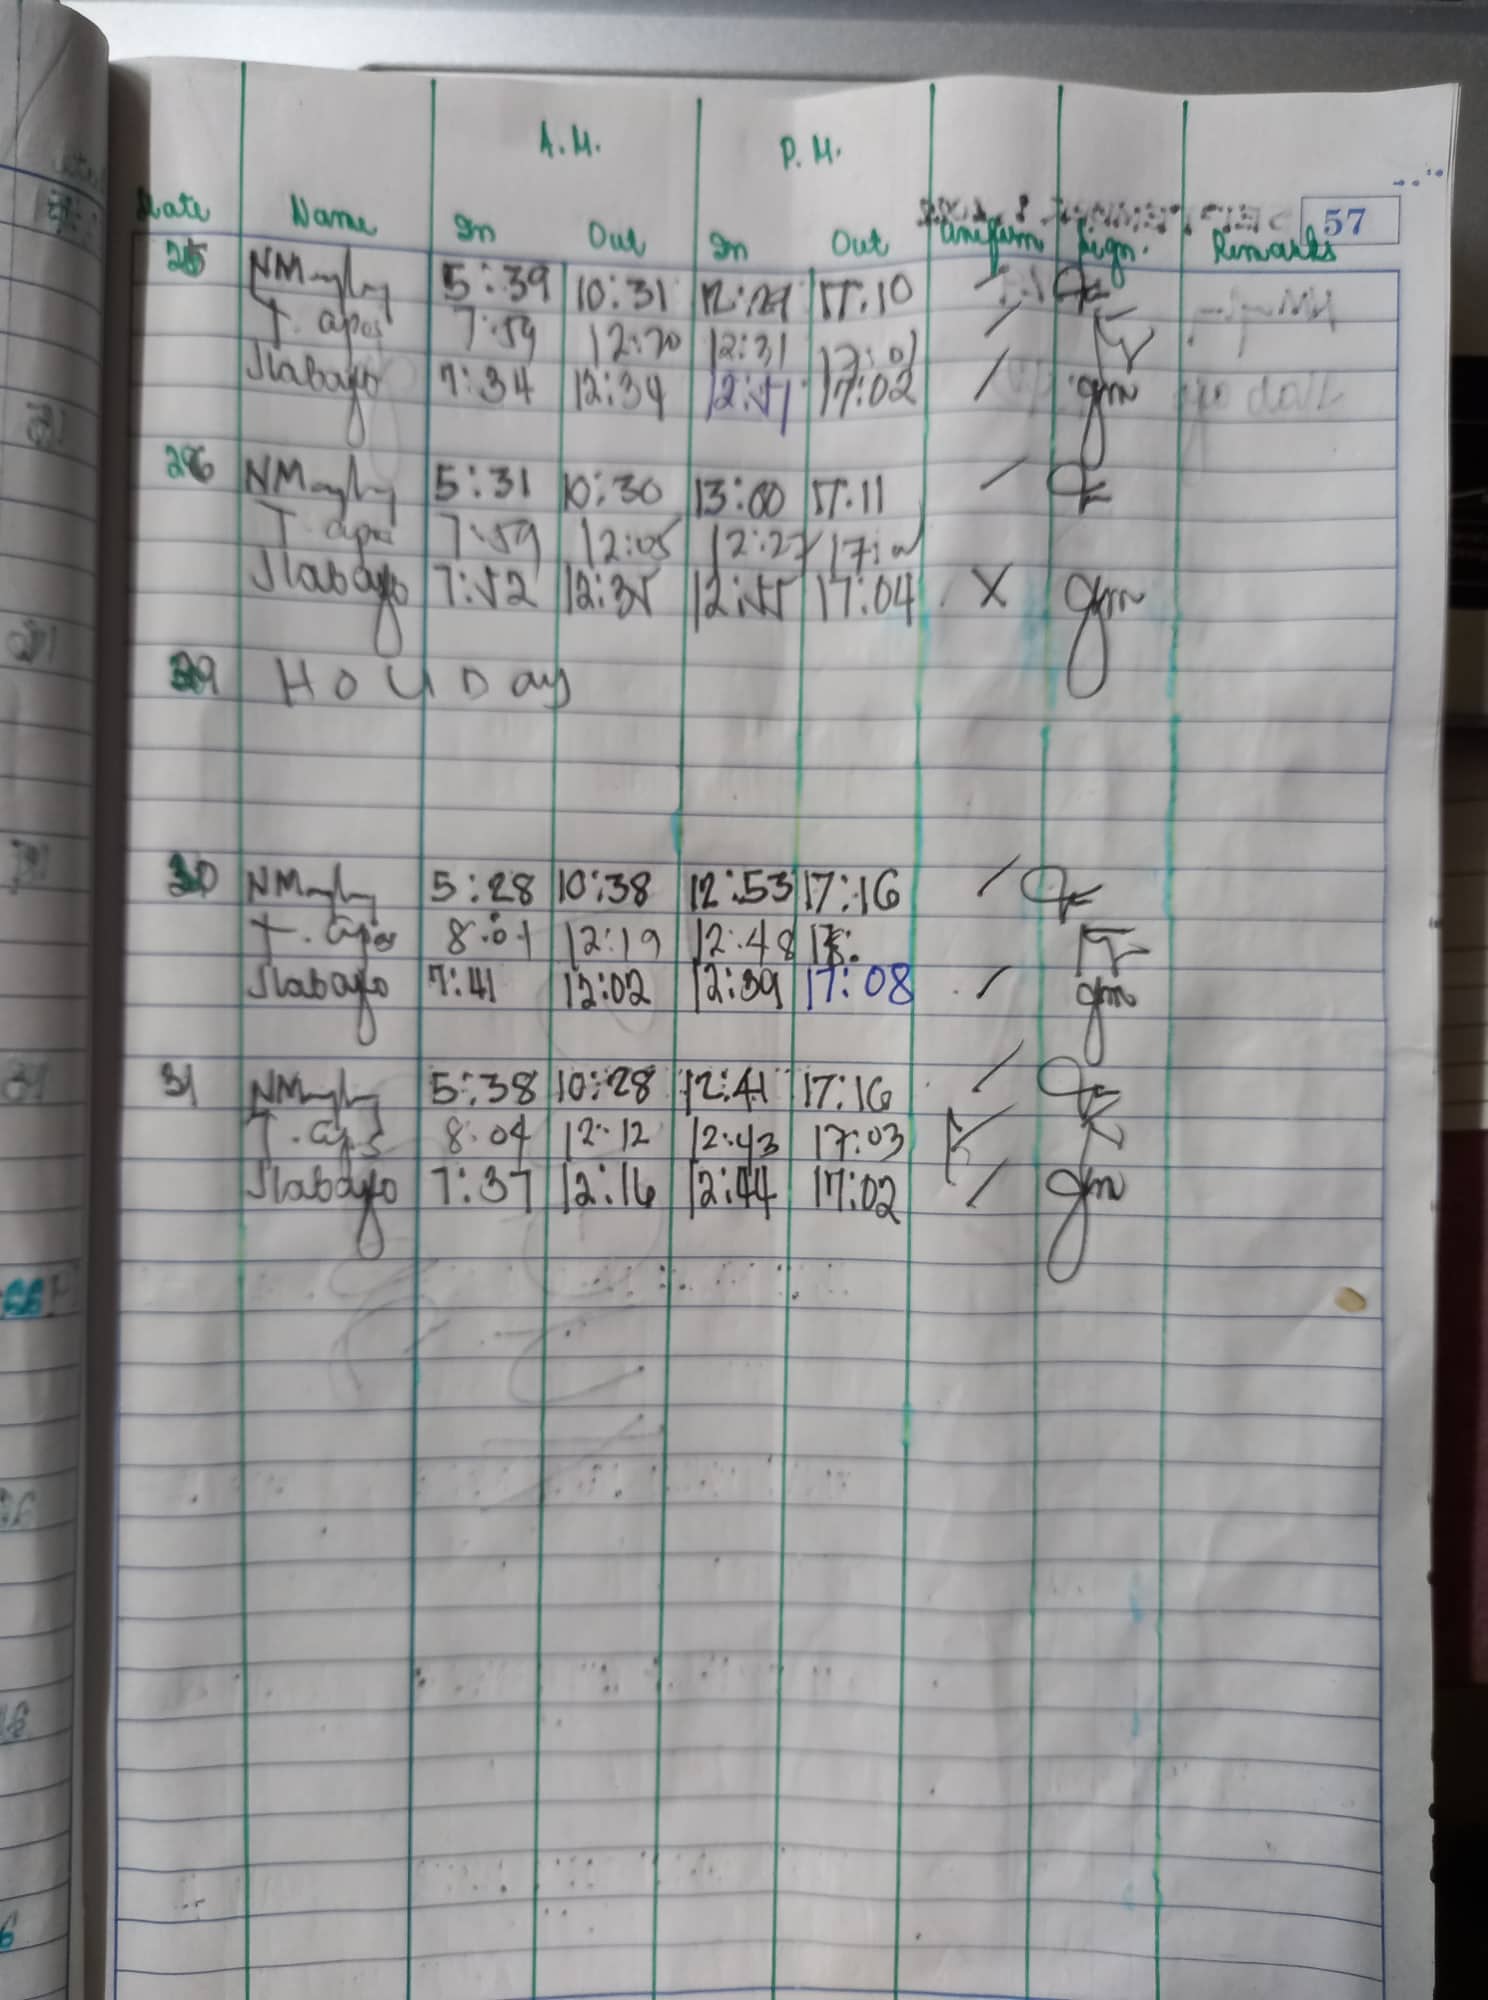 A.M. P.M.
Date Name In Out In Out Uniform Sign. Remarks 57
25 5:39 10:31 12:29 17:10 /
T. apas 7:59 12:20 12:31 17:01 /
Jlabayo 7:34 12:34 12:51 17:02 /
26 5:31 10:30 13:00 17:11 /
T. apas 7:59 12:05 12:27
Jlabayo 7:52 12:35 12:55 17:04 X
29 HOLIDAY
30 5:28 10:38 12:53 17:16 /
T. apas 8:01 12:19 12:48
Jlabayo 7:41 12:02 12:39 17:08 /
31 5:38 10:28 12:41 17:16 /
T. apas 8:04 12:12 12:43 17:03
Jlabayo 7:37 12:16 12:44 17:02 /